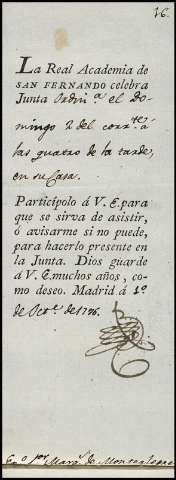 16.
La Real Academia de
SAN FERNANDO celebra
Junta Ordin.ª el Do-
mingo 2 del corr.te á
las quatro de la tarde,
en su Casa.
Particípolo á V. E. para
que se sirva de asistir,
ó avisarme si no puede,
para hacerlo presente en
la Junta. Dios guarde
á V. E. muchos años, co-
mo deseo. Madrid á 1.º
de Oct.e de 1796.
S.or Marq.s de